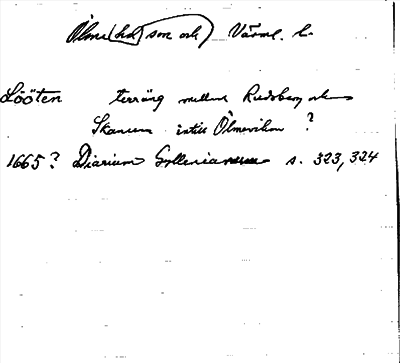 Ölme (hd, son och) Värml. l.
Lööten terräng mellan Rudsberg och
Skanum intill Ölmeviken ?
1665? Diarium Gyllenianum s. 323, 324